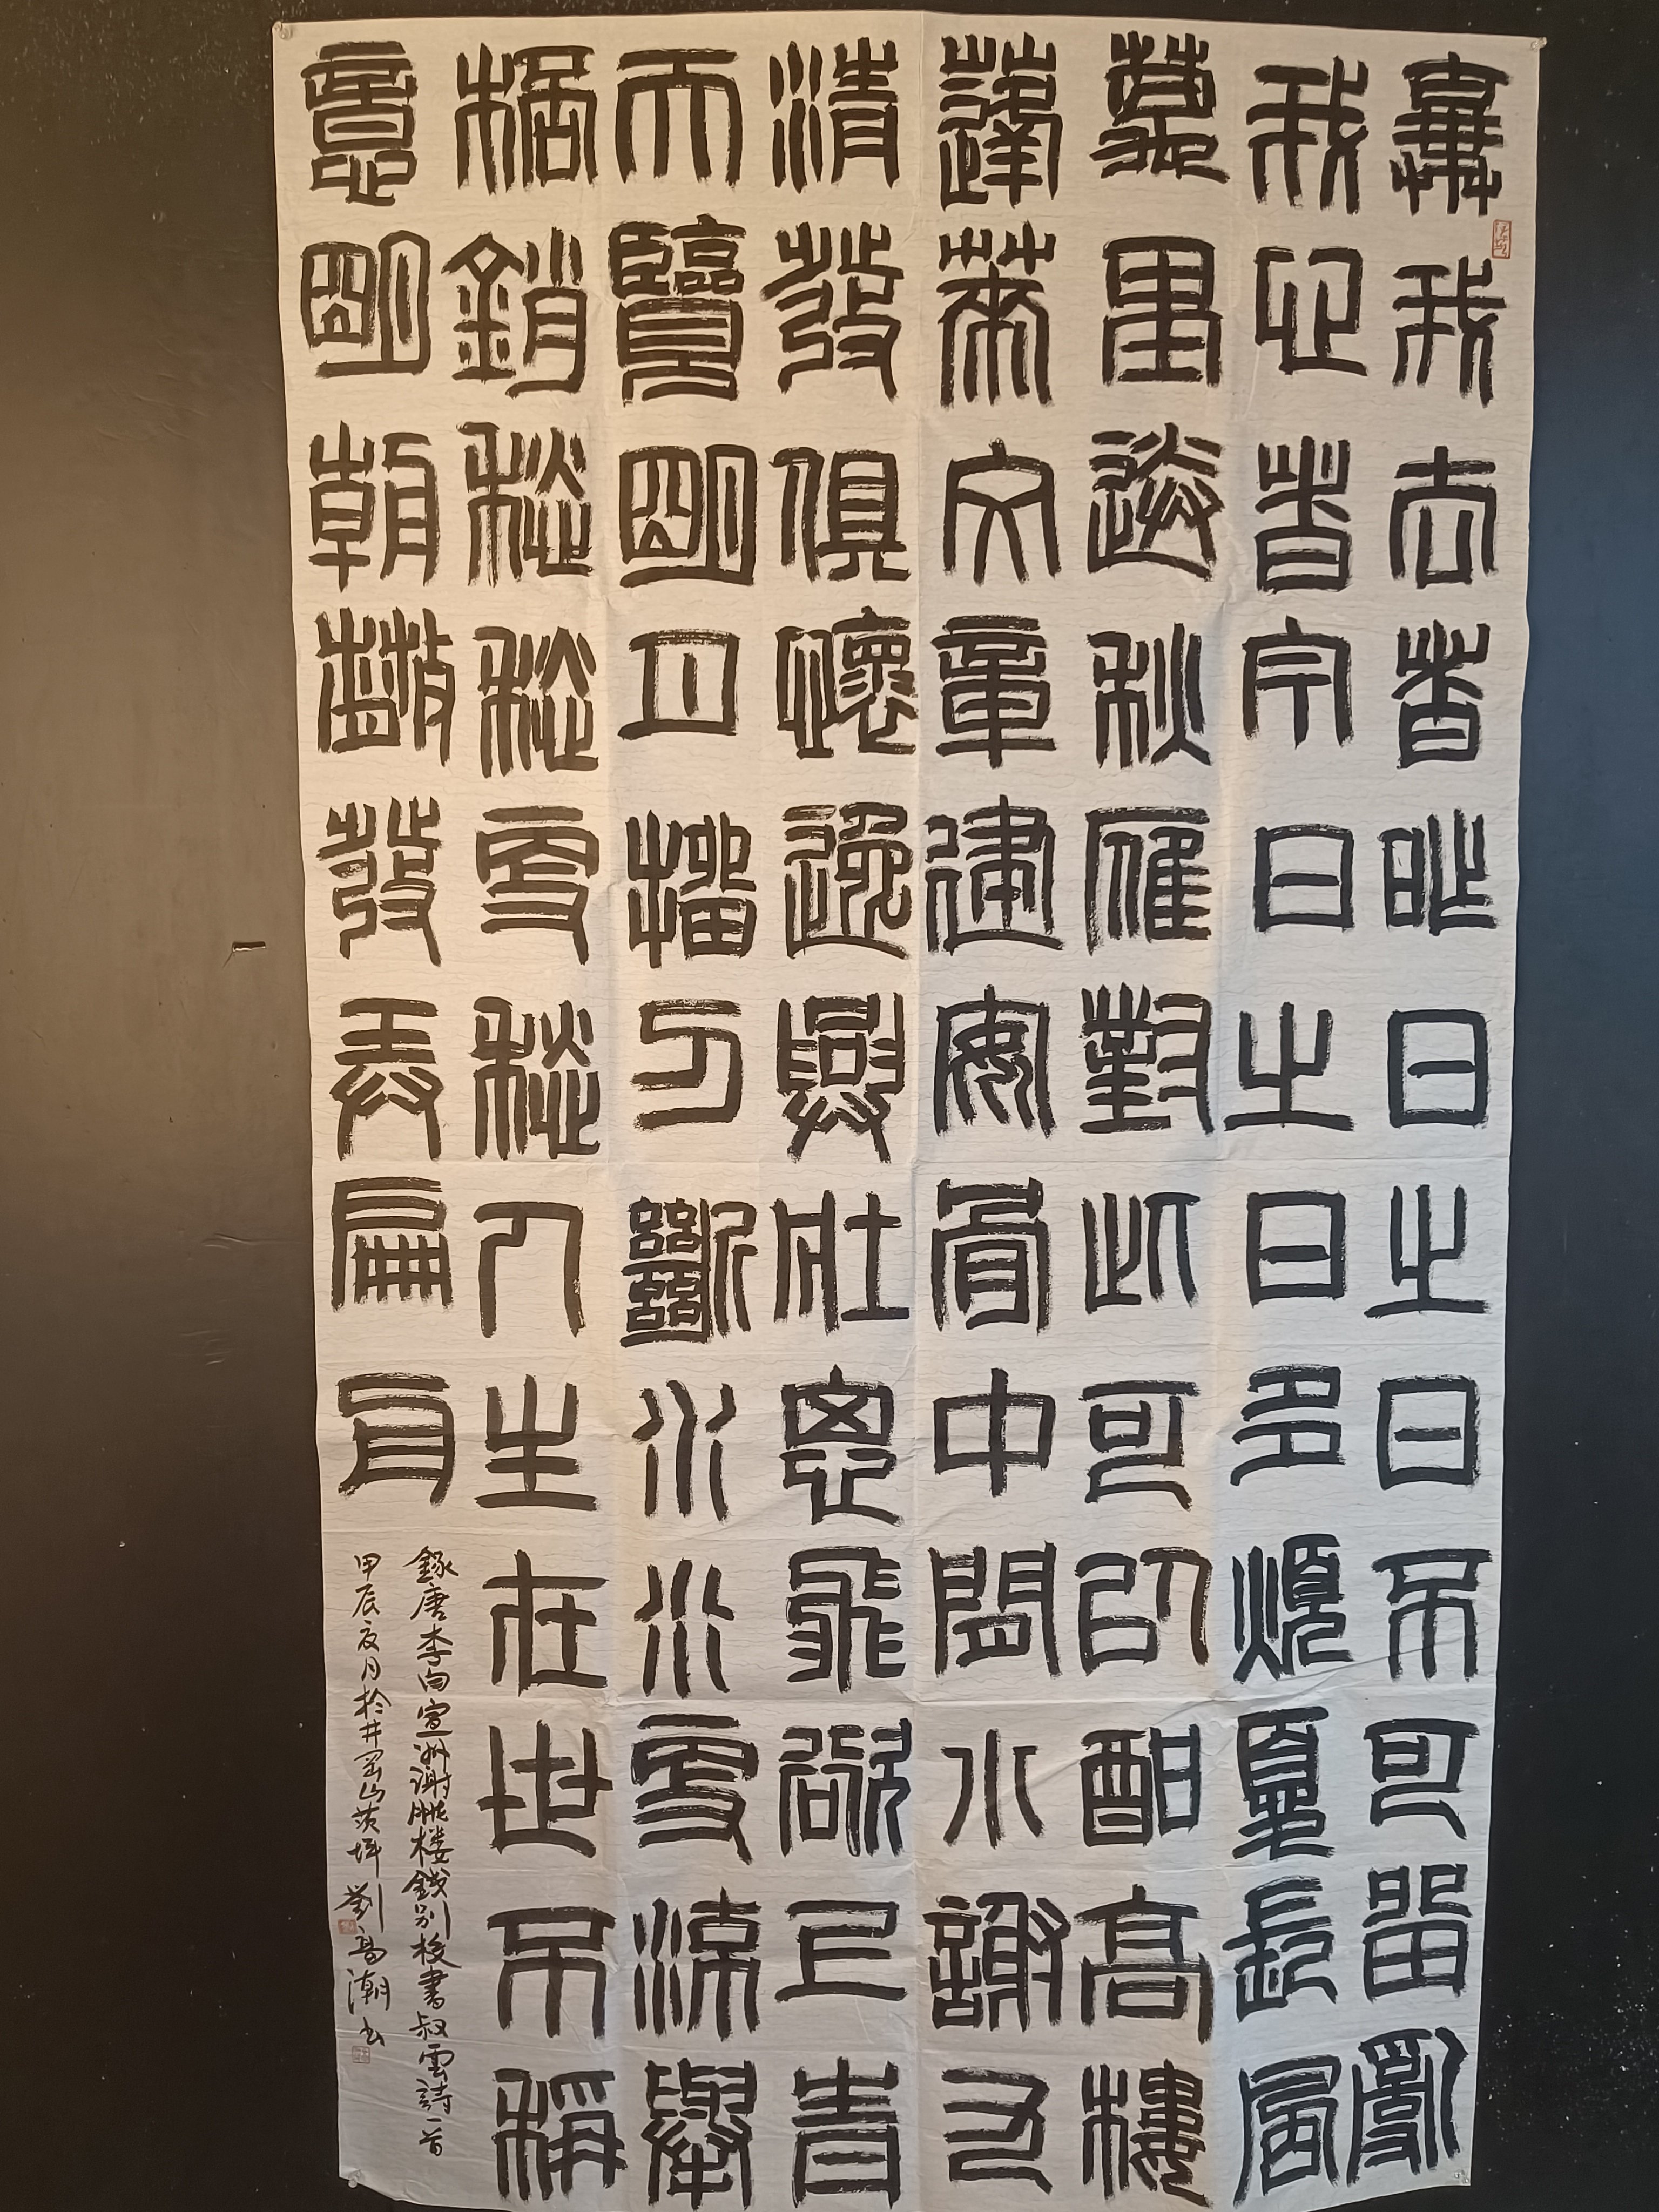 棄我去者昨日之日不可留亂
我心者今日之日多煩憂長風
萬里送秋雁對此可以酣高樓
蓬萊文章建安骨中間小謝又
清發俱懷逸興壯思飛欲上青
天覽明月抽刀斷水水更流舉
杯銷愁愁更愁人生在世不稱
意明朝散發弄扁舟
錄唐李白宣洲謝朓楼餞别校書叔雲詩一首
甲辰夏月於井岡山茨坪劉高潮书